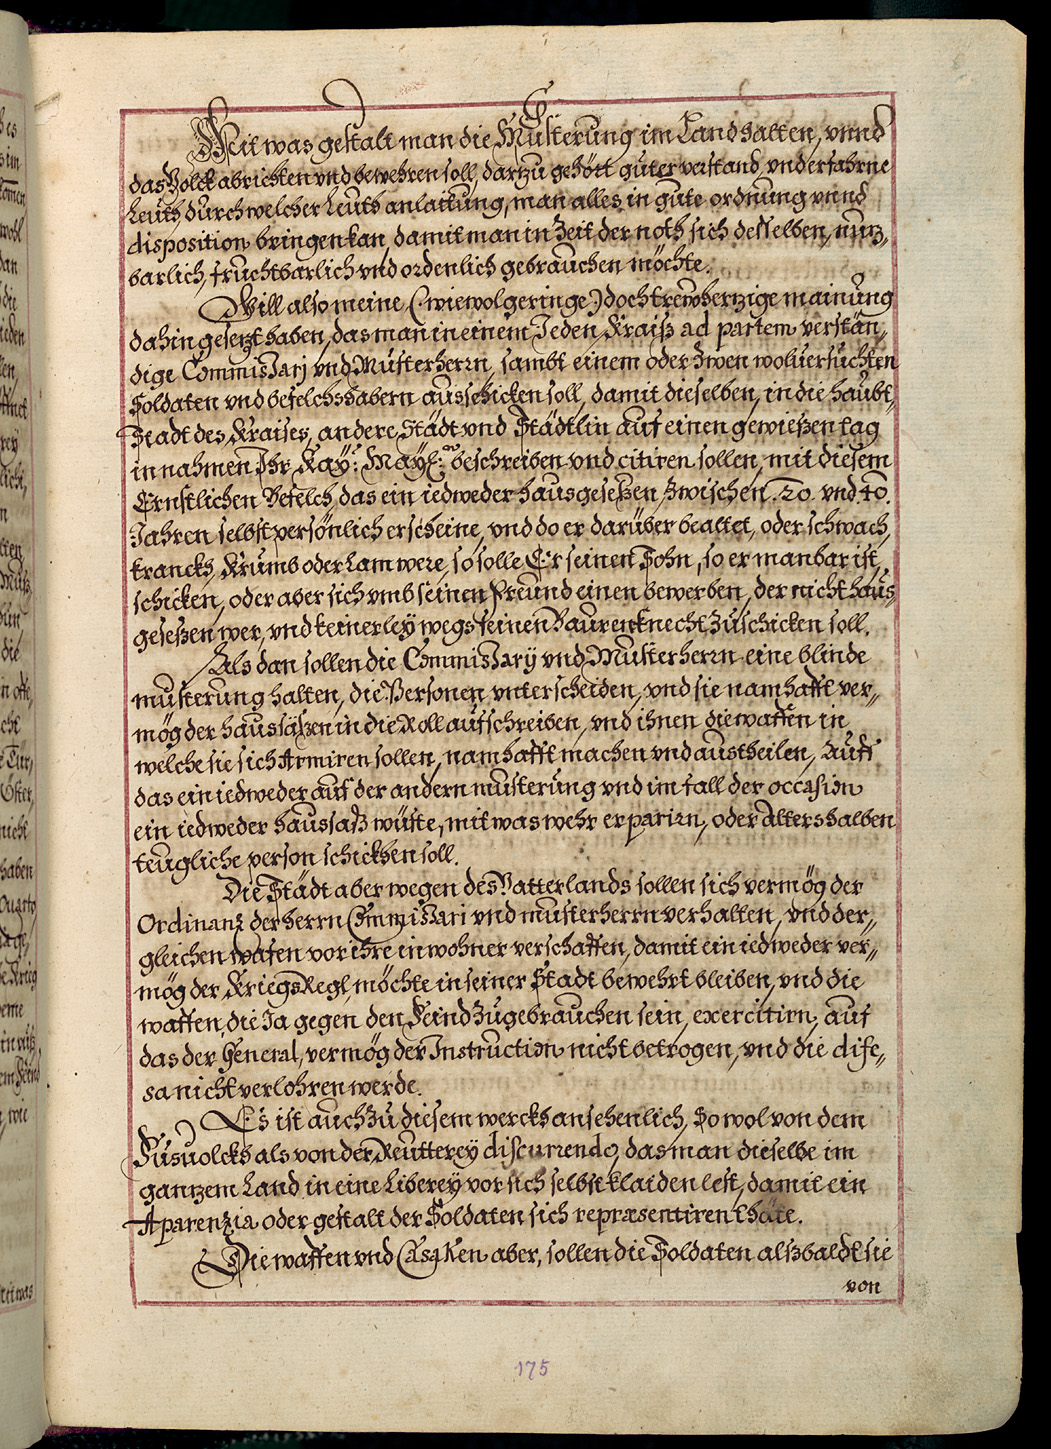 Mit was gestalt man die Musterung im Land halten, vnnd
das Volck abrichten vnd bewehren soll, darzu gehört guter verstand, vnd erfahrne
Leuth, durch welcher Leuth anlaitung, man alles in gute ordnung vnnd
disposition bringen kan, damit man in Zeit der noth sich desselben, nutz,
barlich, fruchtbarlich vnd ordenlich gebrauchen möchte.
Will also meine (: wiewol geringe :) doch trewhertzige mainung
dahin gesetzt haben, das man in einem Jeden Kraiß ad partem verstän,
dige Commissarj vnd Musterherrn, sambt einem oder Zwen woluersuchten
Soldaten vnd befelchshabern ausschicken soll, damit dieselben, in die haubt,
Stadt des Kraises, andere Städt vnd Städtlin auf einen gewießen tag
in nahmen Ihr Kay: May: beschreiben vnd citiren sollen, mit diesem
Ernstlichen Befelch, das ein iedweder hausgeseßen Zwischen .20. vnd 40.
Jahren selbst persönlich erscheine, vnd do er darüber bealtet, oder schwach,
kranckh, Krumb oder Lam were, so solle Er seinen Sohn, so er manbar ist,
schicken, oder aber sich vmb seinen Freund einen bewerben, der nicht haus
geseßen wer, vnd keinerley wegs seinen Baurenknecht Zuschicken soll.
Als dan sollen die Commissarÿ vnd Musterherrn eine blinde
musterung halten, die Personen vnterscheiden, vnd sie namhafft ver,,
mög der haussäßen in die Roll aufschreiben, vnd ihnen die waffen in
welche sie sich Armiren sollen, namhafft machen vnd austheilen, Auff
das ein iedweder auf der andern musterung vnd im fall der occasion
ein iedweder haussaß wüste, mit was wehr er parirn, oder Alters halben
teugliche person schickhen soll.
Die Städt aber wegen des Vatterlands sollen sich vermög der
Ordinanz der herrn Commissari vnd musterherrn verhalten, vnd der,,
gleichen wafen vor ihre inwohner verschaffen, damit ein iedweder ver,,
mög der Kriegs Regl, möchte in seiner Stadt bewehrt bleiben, vnd die
waffen, die Ja gegen den Feind Zugebrauchen sein, exercitirn, auf
das der General, vermög der Instruction nicht betrogen, vnd die dife,,
sa nicht verlohren werde.
Es ist auch Zu diesem werckh ansehenlich, So wol von dem
Fusuolckh als von der Reutterey discurrendo, das man dieselbe im
gantzem Land in eine Liberey vor sich selbst klaiden lest, damit ein
Aparenzia oder gestalt der Soldaten sich repræsentiren thäte.
Die waffen vnd Casaken aber, sollen die Soldaten alßbaldt sie
von
175